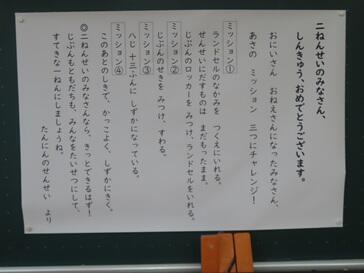 二ねんせいのみなさん、
しんきゅう、おめでとうございます。
おにいさん おねえさんになったみなさん、
あさの ミッション 三つにチャレンジ！
ミッション①
ランドセルのなかみを つくえにいれる。
せんせいにだすものは まだもったまま。
じぶんのロッカーを みつけ、ランドセルをいれる。
ミッション②
じぶんのせきを みつけ、すわる。
ミッション③
八じ 十三ぷんに しずかになっている。
ミッション④
このあとのしきで、かっこよく、しずかにきく。
◎二ねんせいのみなさんなら、きっとできるはず！
じぶんもともだちも、みんなをたいせつにして、
すてきな一ねんにしましょうね。
たんにんのせんせい より